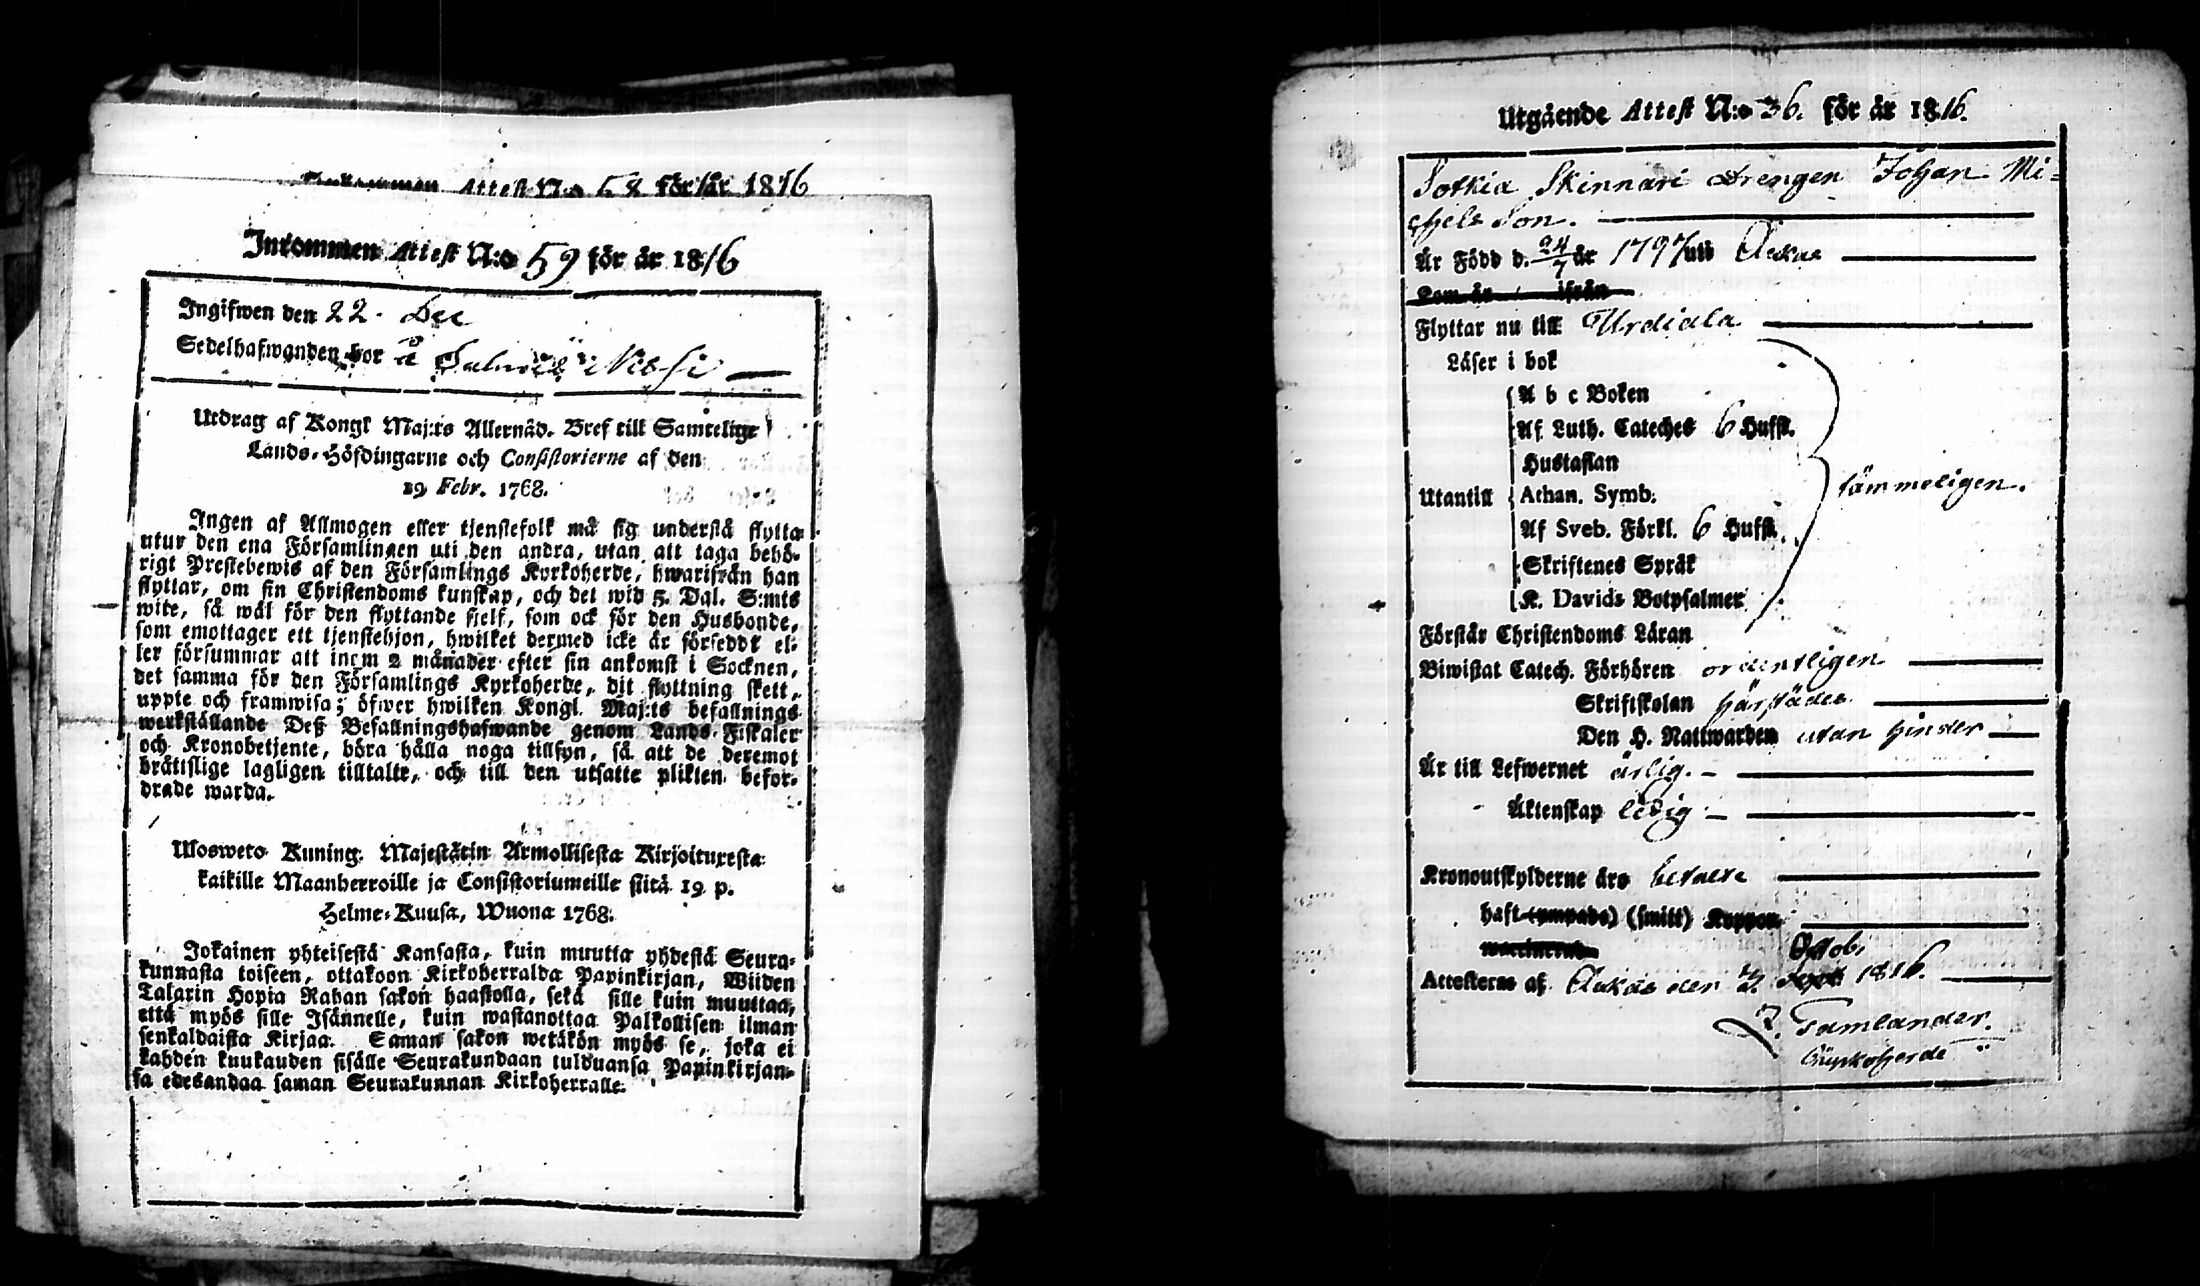 Inkommen Attest N:o 58 för år 1816
Inkommen Attest N:o 59 för år 1816
Ingifwen den 22. Dec
Sedelhafwanden bor å
Utdrag af Kongl Maj:ts Allernåd. Bref till Samtelige
Lands-Höfdingarne och Consistorierne af den
19 Febr. 1768.
Ingen af Allmogen eller tjenstefolk må sig understå flytta
utur den ena Församlingen uti den andra, utan att taga behö-
rigt Prestebewis af den Församlings Kyrkoherde, hwarifrån han
flyttar, om sin Christendoms kunskap, och det wid 5. Dal. S:mts
wite, så wäl för den flyttande sjelf, som ock för den Husbonde,
som emottager ett tjenstehjon, hwilket dermed icke är förseddt el-
ler försummar att inom 2 månader efter sin ankomst i Socknen,
det samma för den Församlings Kyrkoherde, dit flyttning skett,
uppte och framwisa; öfwer hwilken Kongl. Maj:ts befallnings
werkställande Deß Befallningshafwande genom Lands-Fiskaler
och Kronobetjente, böra hålla noga tillsyn, så att de deremot
brättslige lagligen tilltalte, och till den utsatte plikten befor-
drade warda.
Ulosweto Kuning. Majestätin Armollisesta Kirjoituxesta
kaikille Maanherroille ja Consistoriumeille siitä 19 p.
Helme-Kuusa, Wuona 1768.
Jokainen yhteisestä Kansasta, kuin muutta yhdestä Seura-
kunnasta toiseen, ottakoon Kirkoherralda Papinkirjan, Wiiden
Talarin Hopia Rahan sakon haastolla, sekä sille kuin muuttaa,
että myös sille Isännelle, kuin wastanottaa Palkollisen ilman
senkaldaista Kirjaa. Saman sakon wetäkön myös se, joka ei
kahden kuukauden sisälle Seurakundaan tulduansa Papinkirjan-
sa edesandaa saman Seurakunnan Kirkoherralle.
Utgående Attest N:o 36. för år 1816.
Sotkia Skinnari Drengen Johan Mi-
chels Son.
Är Född d. 24/7 år 1797 uti Ackas
Kom år ifrån
Flyttar nu till Urdiala
Läser i bok
A b c Boken
Af Luth. Cateches 6 Hufst.
Hustaflan
Utantill Athan. Symb. sämmeligen.
Af Sveb. Förkl. 6 Hufst.
Skriftenes Språk
K. Davids Botpsalmer
Förstår Christendoms Läran
Biwistat Catech. Förhören ordentligen
Skriftskolan härstädes
Den H. Nattwarden utan hinder
Är till Lefwernet ärlig.
Äktenskap ledig
Kronoutskylderne äro betalte
haft (smitt) Koppor
Octob.
Attesteras af Ackas den 2/. Sept 1816.
J. Tamlander.
Kyrkoherde